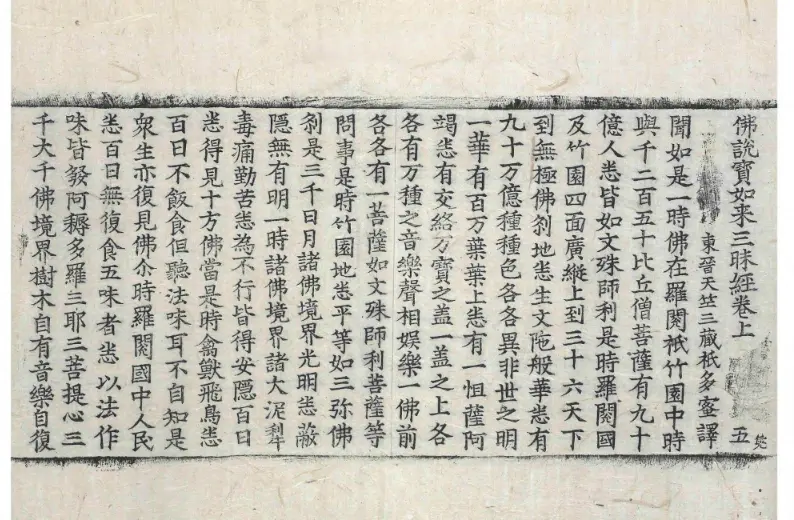 佛說寶如来三昧經卷上 五
東晉天竺三藏祇多蜜譯
聞如是一時佛在羅閱祇竹園中時
與千二百五十比丘僧菩薩有九十
億人悉皆如文殊師利是時羅閱國
及竹園四面廣縱上到三十六天下
到無極佛刹地悉生文陁般華悉有
九十万億種種色各各異非世之明
一華有百万葉葉上悉有一怛薩阿
竭悉有交絡万寶之盖一盖之上各
各有万種之音樂聲相娛樂一佛前
各各有一菩薩如文殊師利菩薩等
問事是時竹園地悉平等如三弥佛
刹是三千日月諸佛境界光明悉蔽
隱無有明一時諸佛境界諸大泥犁
毒痛勤苦悉為不行皆得安隱百日
悉得見十方佛當是時禽獸飛鳥悉
百日不飯食但聽法味耳不自知是
衆生亦復見佛尒時羅閱國中人民
悉百日無復食五味者悉以法作
味皆發阿耨多羅三耶三菩提心三
千大千佛境界樹木自有音樂自復